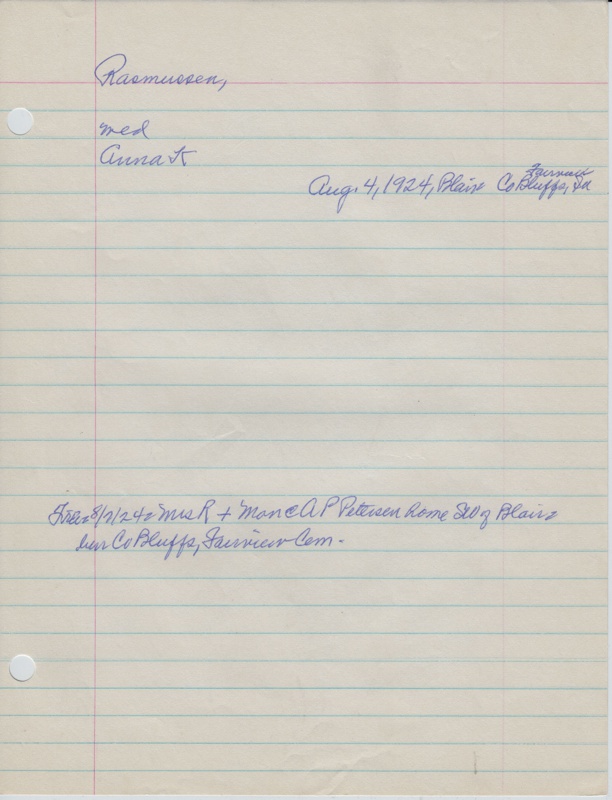 Rasmussen,
med
Anna K
Fairview
Aug. 4, 1924, Blair Co Bluffs, Ia
8/7/24 = Mrs R + A P Petersen home SW of Blair =
bur Co Bluffs, Fairview Cem.